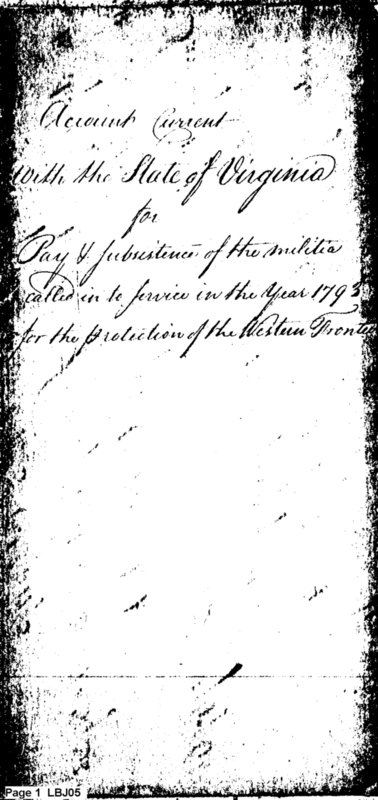 Account Current
With the State of Virginia
for
Pay & Subsistence of the militia
called in to Service in the Year 1793
for the protection of the Western Frontier
Page 1 LBJ05